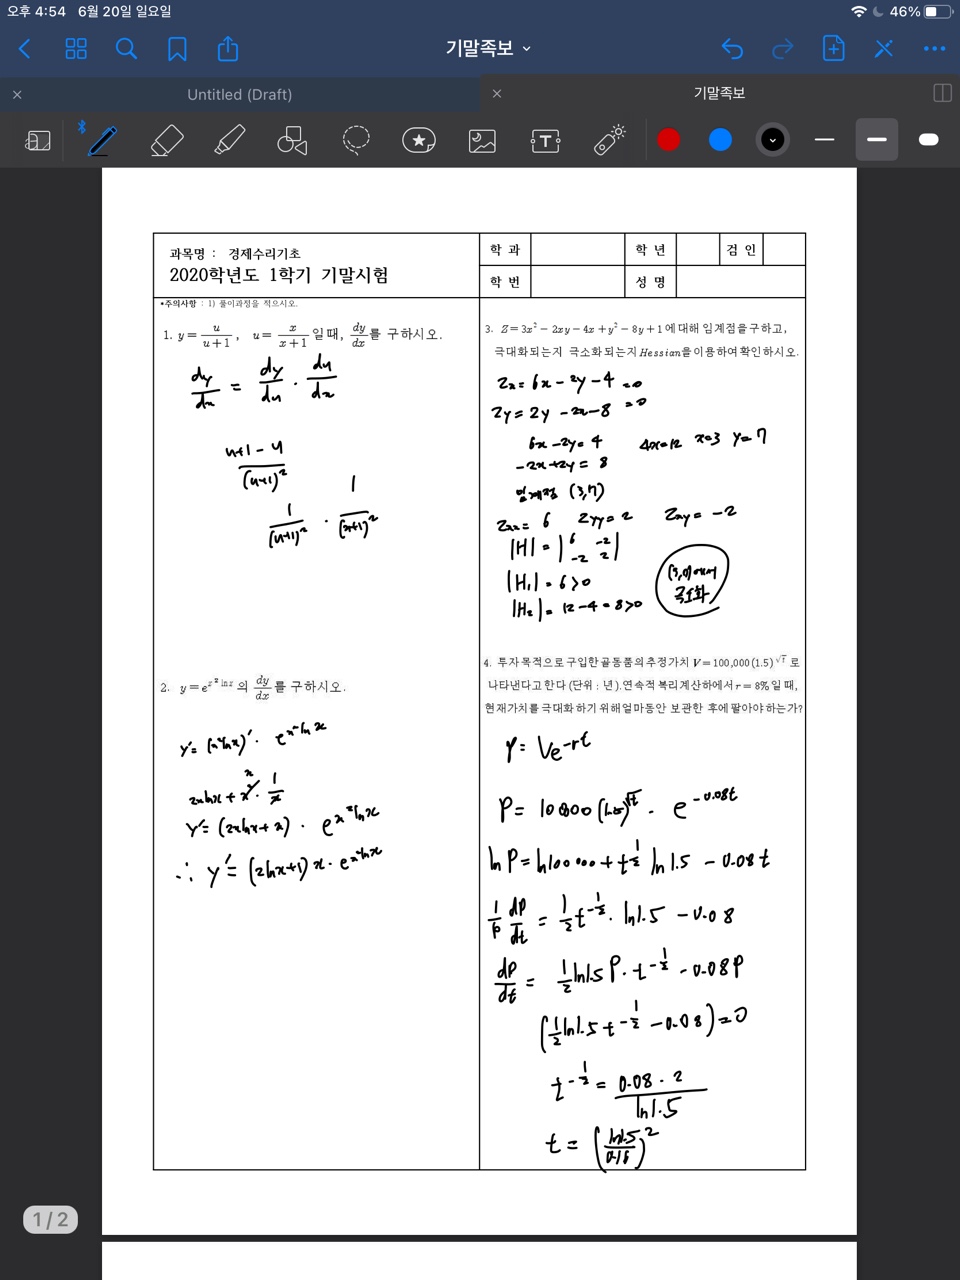 오후 4:54 6월 20일 일요일 46%
기말족보
Untitled (Draft) 기말족보
과목명 : 경제수리기초
2020학년도 1학기 기말시험
학 과 학 년 검 인
학 번 성 명
*주의사항 : 1) 풀이과정을 적으시오.
1. y = u/(u+1), u = x/(x+1) 일 때, dy/dx 를 구하시오.
dy/dx = dy/du · du/dx
(u+1-u)/(u+1)²
1/(u+1)² · 1/(x+1)²
2. y = e^(x² ln x) 의 dy/dx 를 구하시오.
y' = (x² ln x)' · e^(x² ln x)
2x ln x + x² · 1/x x
y' = (2x ln x + x) · e^(x² ln x)
∴ y' = (2 ln x + 1) x · e^(x² ln x)
3. Z = 3x² - 2xy - 4x + y² - 8y + 1 에 대해 임계점을 구하고,
극대화되는지 극소화되는지 Hessian을 이용하여 확인하시오.
Zx = 6x - 2y - 4 = 0
Zy = 2y - 2x - 8 = 0
6x - 2y = 4 4x = 12 x = 3 y = 7
-2x + 2y = 8
임계점 (3,7)
Zxx = 6 Zyy = 2 Zxy = -2
|H| = |6 -2
-2 2|
|H₁| = 6 > 0
|H₂| = 12 - 4 = 8 > 0
(3,7)에서
극소화
4. 투자 목적으로 구입한 골동품의 추정가치 V = 100,000(1.5)^√t 로
나타낸다고 한다 (단위 : 년). 연속적 복리계산하에서 r = 8% 일 때,
현재가치를 극대화 하기 위해 얼마동안 보관한 후에 팔아야 하는가?
P = Ve^-rt
P = 100000 (1.5)^√t · e^-0.08t
ln P = ln 100000 + t^1/2 ln 1.5 - 0.08t
1/P dP/dt = 1/2 t^-1/2 · ln 1.5 - 0.08
dP/dt = 1/2 ln 1.5 P · t^-1/2 - 0.08P
(1/2 ln 1.5 t^-1/2 - 0.08) = 0
t^-1/2 = 0.08 · 2 / ln 1.5
t = (ln 1.5 / 0.16)²
1 / 2